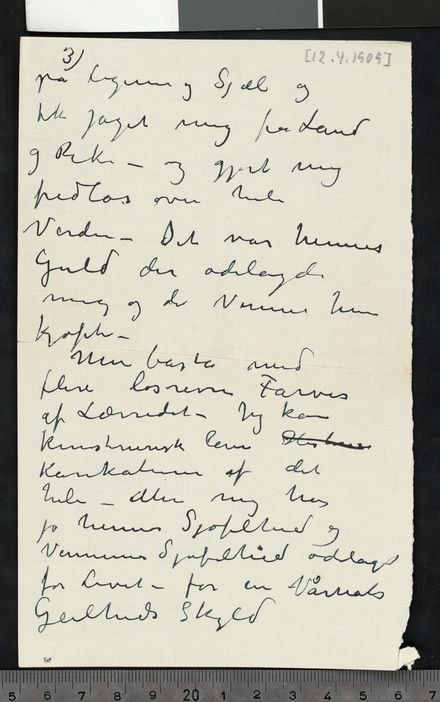 3)
[12.4.1909]
på Legeme og Sjæl og
har jaget mig fra Land
og Rike – og gjort mig
fredløs over hele
Verden – Det var hendes
Guld der ødelagde
mig og de Venner hun
kjøpte –
Men basta med
flere løsrevne Farver
af Lærredet – Jeg kan
kunstnerisk lave
Karikaturer af det
hele – Men mig har
jo hennes Sjofelhed og
Vennernes Sjofelhed ødelagt
for Livet – for en Vårnats
Geilheds Skyld
5 6 7 8 9 20 1 2 3 4 5 6